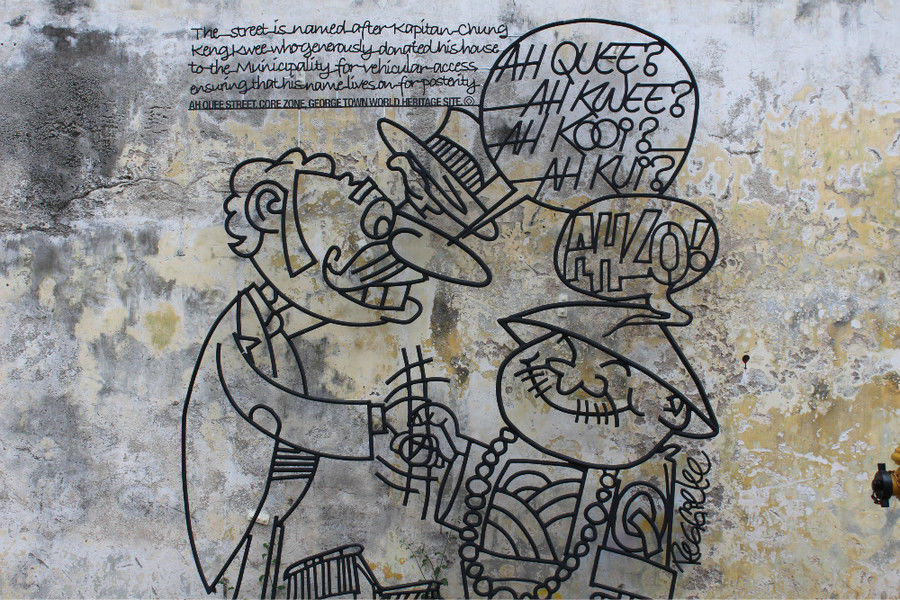 The street is named after Kapitan Chung
Keng Kwee who generously donated his house
to the Municipality for vehicular access
ensuring that his name lives on for posterity
AH QUEE STREET, CORE ZONE, GEORGE TOWN WORLD HERITAGE SITE.
AH QUEE?
AH KWEE?
AH KOOI?
AH KUI?